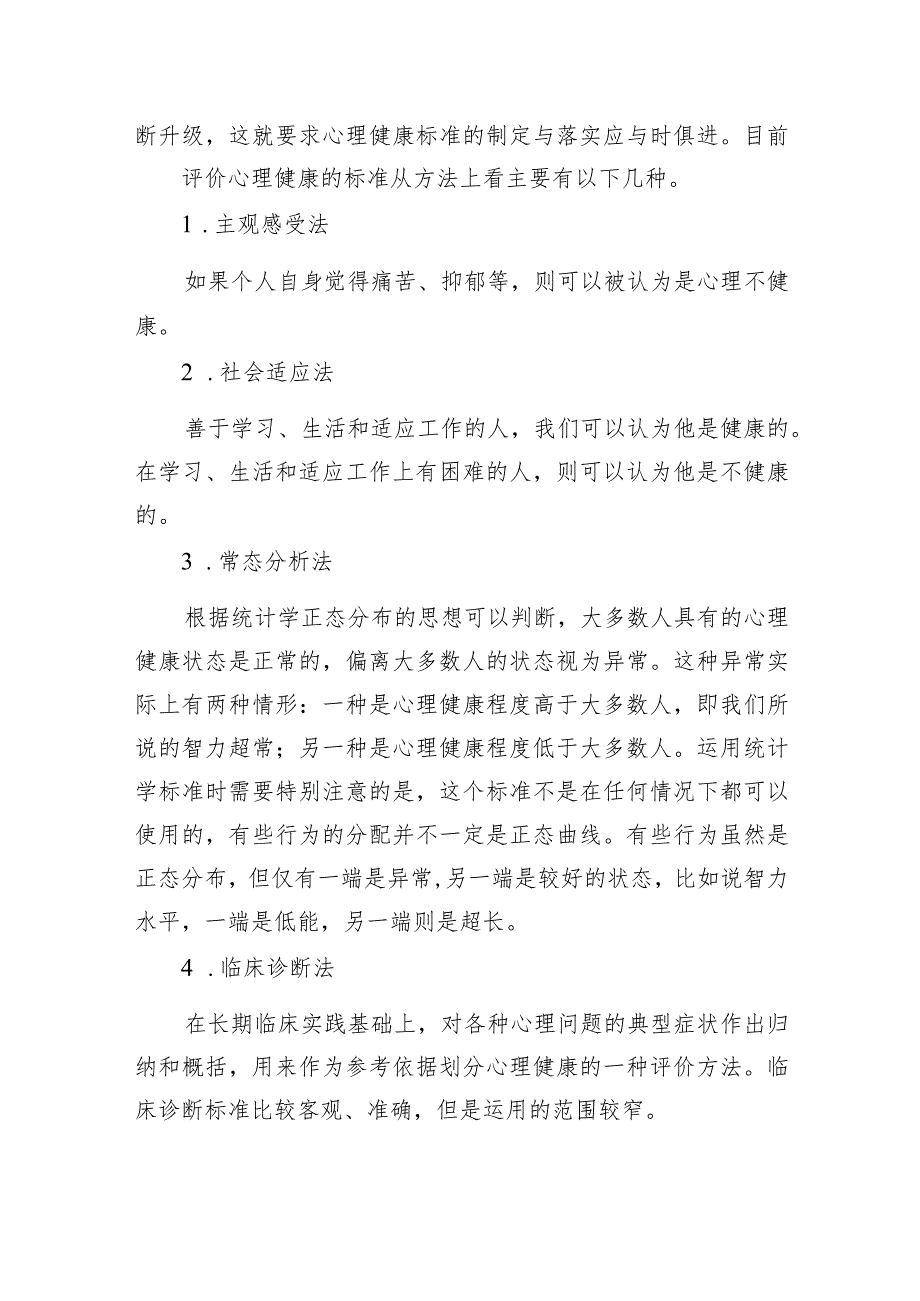 断升级，这就要求心理健康标准的制定与落实应与时俱进。目前
评价心理健康的标准从方法上看主要有以下几种。
1 .主观感受法
如果个人自身觉得痛苦、抑郁等，则可以被认为是心理不健
康。
2 .社会适应法
善于学习、生活和适应工作的人，我们可以认为他是健康的。
在学习、生活和适应工作上有困难的人，则可以认为他是不健康
的。
3 .常态分析法
根据统计学正态分布的思想可以判断，大多数人具有的心理
健康状态是正常的，偏离大多数人的状态视为异常。这种异常实
际上有两种情形：一种是心理健康程度高于大多数人，即我们所
说的智力超常；另一种是心理健康程度低于大多数人。运用统计
学标准时需要特别注意的是，这个标准不是在任何情况下都可以
使用的，有些行为的分配并不一定是正态曲线。有些行为虽然是
正态分布，但仅有一端是异常,另一端是较好的状态，比如说智力
水平，一端是低能，另一端则是超长。
4 .临床诊断法
在长期临床实践基础上，对各种心理问题的典型症状作出归
纳和概括，用来作为参考依据划分心理健康的一种评价方法。临
床诊断标准比较客观、准确，但是运用的范围较窄。